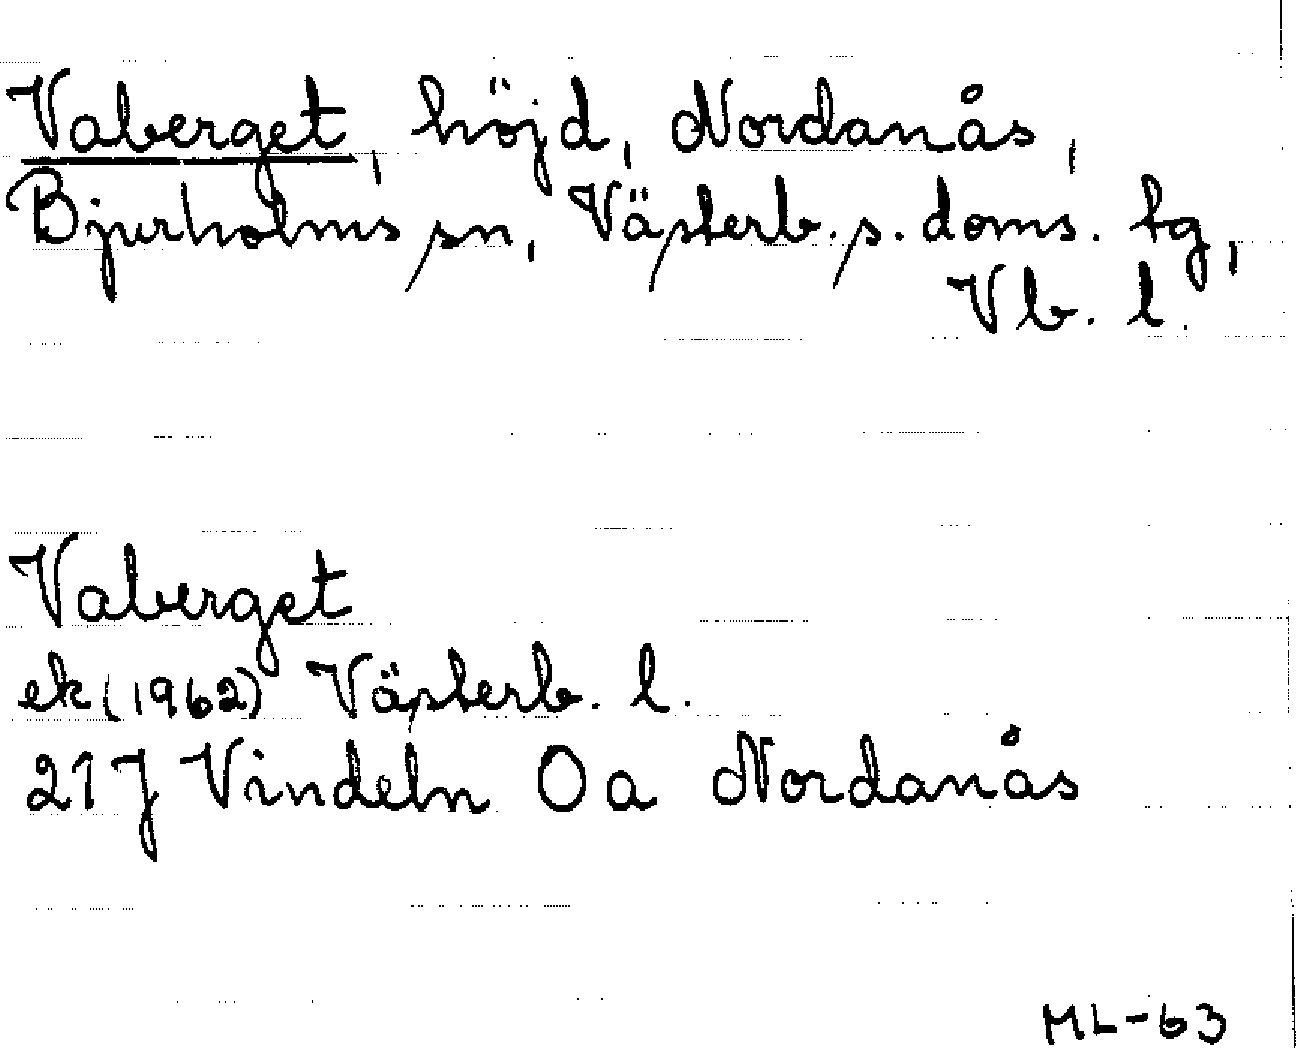 Vaberget, höjd, Nordanås,
Bjurholms sn, Västerb. s. doms. tg,
Vb. l.
Vaberget
ek (1962) Västerb. l.
21 J Vindeln 0a Nordanås
ML-63